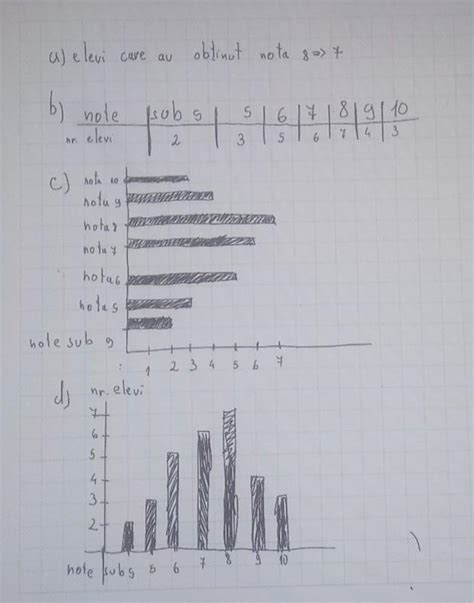 a) elevi care au obtinut nota 8=> 7
b) note sub 5 5 6 7 8 9 10
nr. elevi 2 3 5 6 7 4 3
c) nota 10
nota 9
nota 8
nota 7
nota 6
nota 5
note sub 9
1 2 3 4 5 6 7
d) nr. elevi
7
6
5
4
3
2
note sub 5 5 6 7 8 9 10